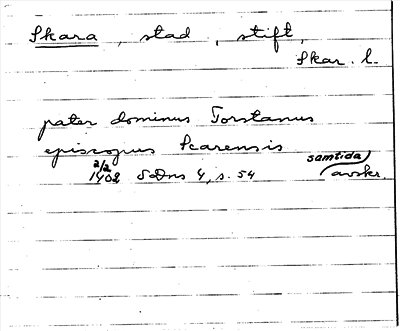 Skara, stad, stift,
Skar. l.
pater dominus Torstanus
episcopus Scarensis
2/2 1402 SDns 4, s. 54 samtida avskr.